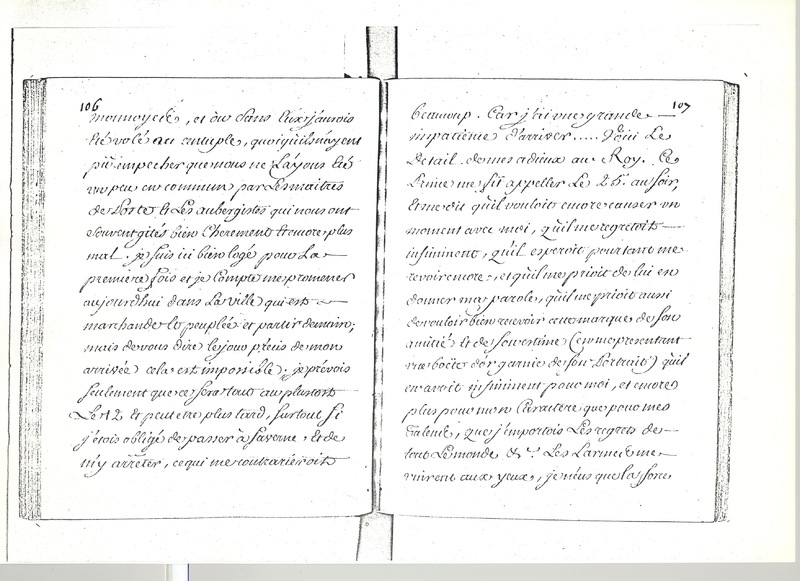 106
monnoyelé, et où sans lux j'aurois
été volé au centuple, quoiqu'ils n'ayent
pû empecher que nous ne l'ayons été
un peu en commun par Les maitres
de Poste et Les aubergistes qui nous ont
souvent gités bien cherement et encore plus
mal. je suis ici bien logé pour La
premiere fois et je compte me promener
aujourdhui dans La ville qui est
marchande et peuplée et partir demain;
mais de vous dire le jour précis de mon
arrivée cela est impossible. je prévois
seulement que ce sera tout au plustost
Le 12 et peut etre plus tard, surtout si
j'etois obligé de passer à Saverne, et de
m'y arrêter, ce qui me contrarieroit
107
beaucoup. Car j'ai une grande
impatience d'arriver..... Voici Le
Detail de mes adieux au Roy. Ce
Prince me fit appeller Le 25. au soir,
et me dit qu'il vouloit encore causer un
moment avec moi, qu'il me regretoit
infiniment, qu'il esperoit pourtant me
revoir encore, et qu'il me prioit de lui en
donner ma parole, qu'il me prioit aussi
de vouloir bien recevoir cette marque de son
amitié et de son estime (en me presentant
une boëte d'or garnie de son Portrait) qu'il
en avoit infiniment pour moi, et encore
plus pour mon Caractere que pour mes
Talents, que j'emportois Les regrets de
tout Le monde &c. Les Larmes me
vinrent aux yeux, je n'eus que la force